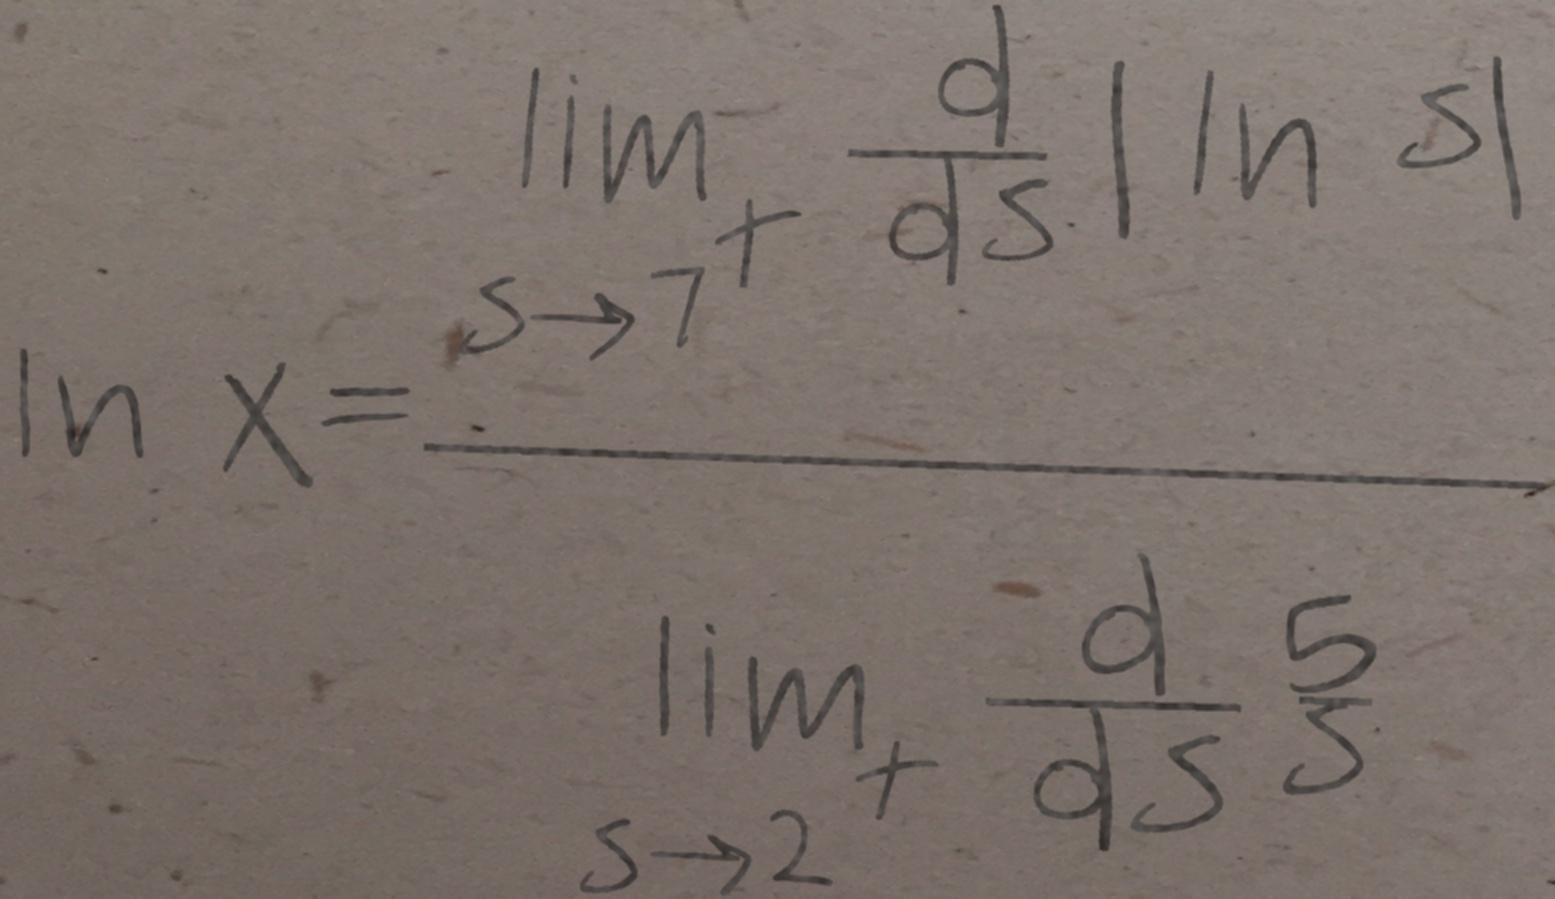 ln x = \frac{\lim_{s \to 7^+} \frac{d}{ds} |\ln s|}{\lim_{s \to 2^+} \frac{d}{ds} \frac{5}{s}}